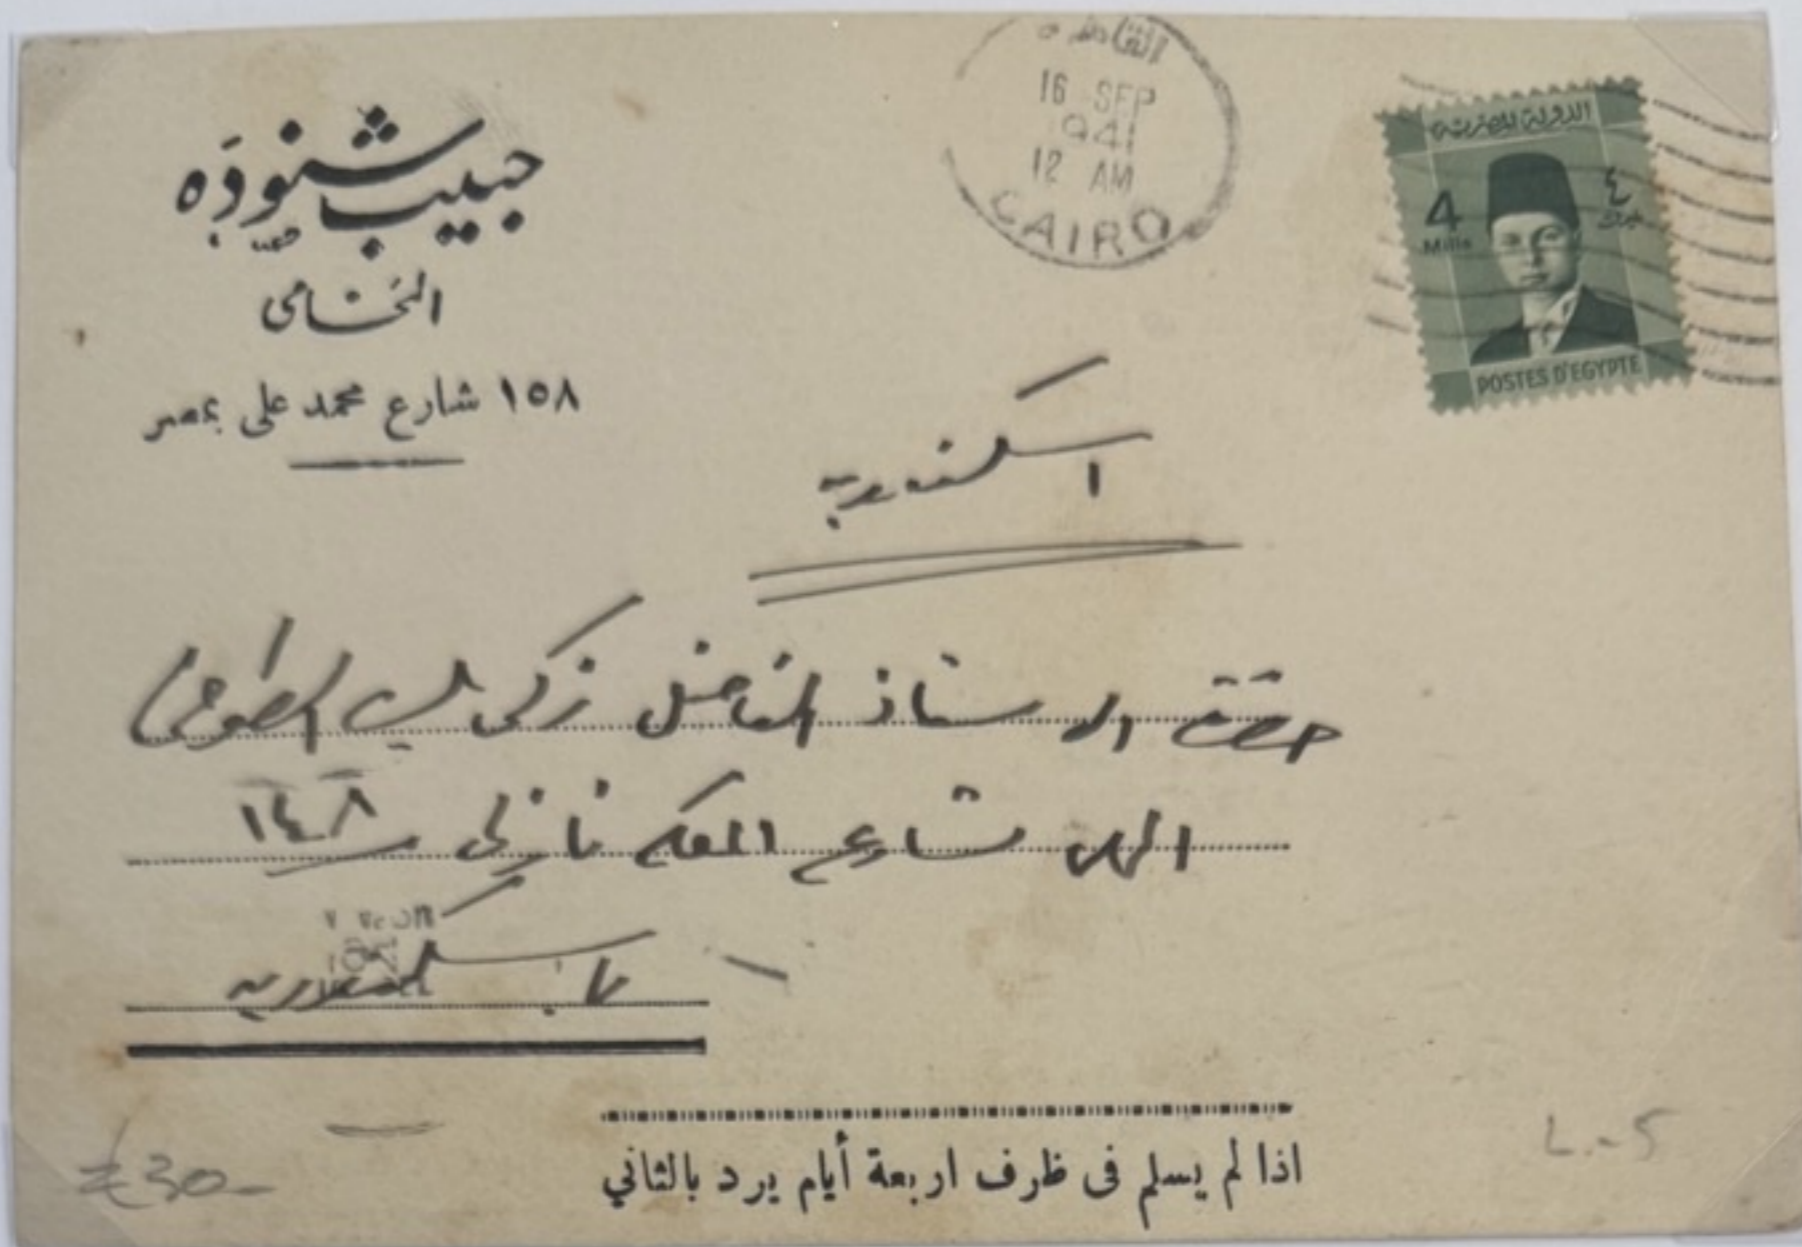 حبيب شنوده
المحامى
١٥٨ شارع محمد على بمصر
القاهرة
16 SEP
941
12 AM
CAIRO
الدولة المصرية
4
Mills
٤
POSTES D'EGYPTE
اسكندرية
حضرة الاستاذ الفاضل زكى
شارع الملكه نازلى ١٤٨
باسكندرية
اذا لم يسلم فى ظرف اربعة أيام يرد بالثاني
£30-